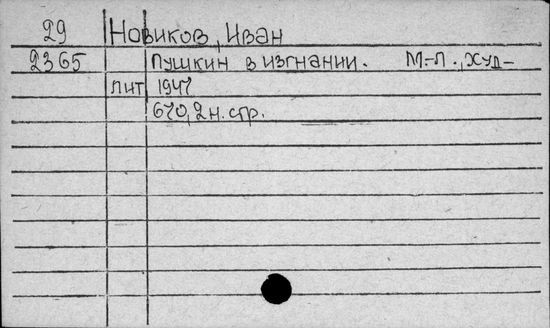 29 Новиков, Иван
2365 Пушкин в изгнании. М.-Л., Худ-
лит 1947
670, 2 н. стр.